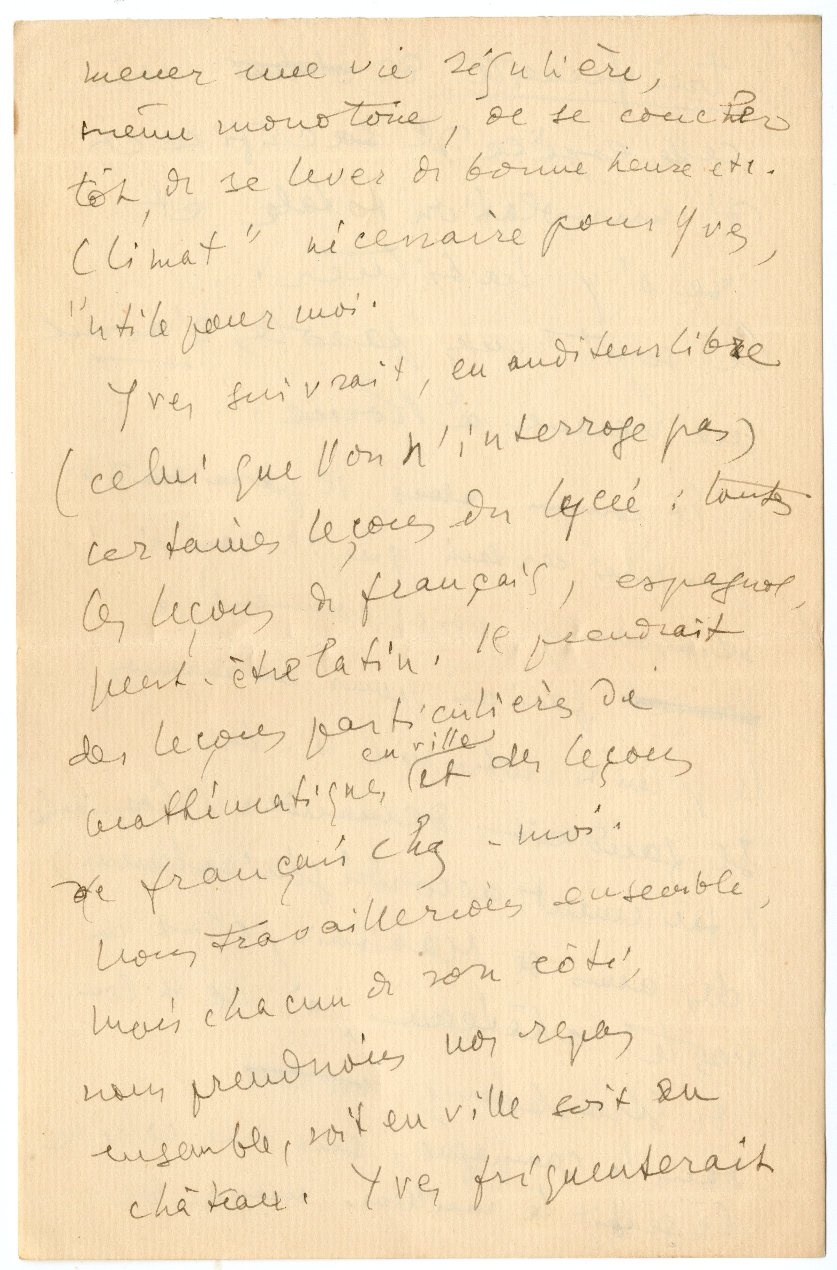 mener une vie régulière,
même monotone, de se coucher
tôt, de se lever de bonne heure etc.
Climat" nécessaire pour Yves,
utile pour moi.
Yves suivrait, en auditeur libre
(celui que l'on n'interroge pas)
certaines leçons du lycée : toutes
les leçons de français, espagnol,
peut-être latin. Il prendrait
des leçons particulières de
mathématiques en ville et des leçons
de français chez-moi.
Nous travaillerions ensemble,
mais chacun de son côté,
nous prendrions nos repas
ensemble, soit en ville soit au
château. Yves fréquenterait